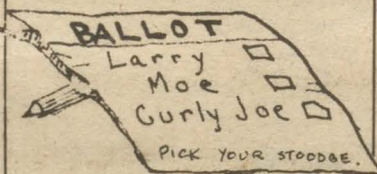 BALLOT
Larry
Moe
Curly Joe
PICK YOUR STOODGE.